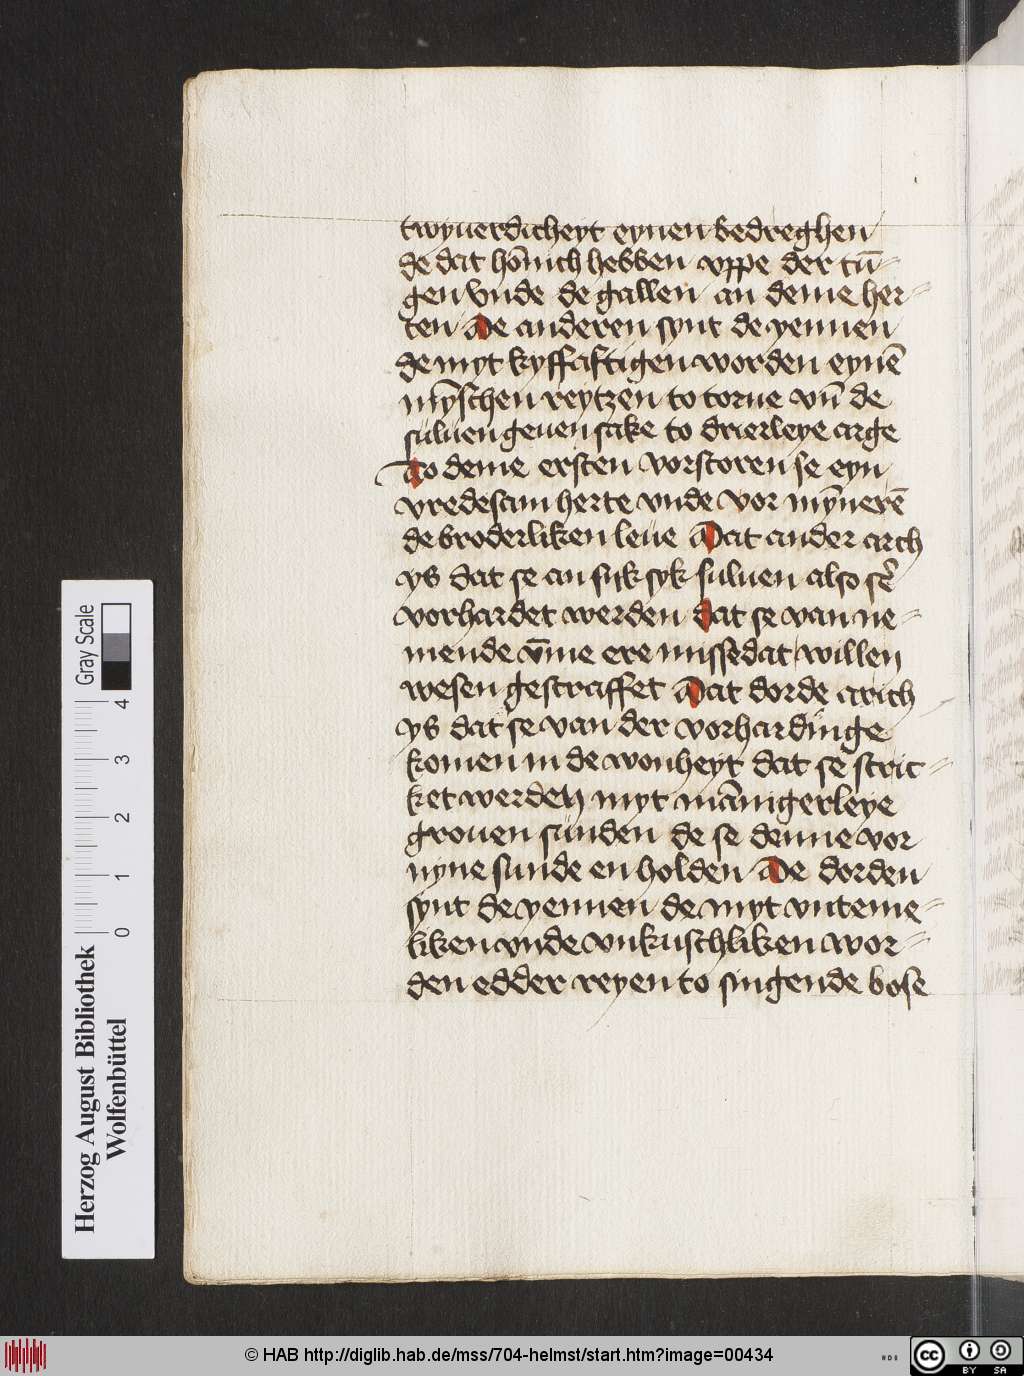 twyuerdicheyt eynen bedreghen
de dat hōnich hebben vppe der tū-
gen vnde de gallen an deme her-
ten De anderen synt de yennen
de myt kyffaftigen worden eynē
mȳschen reytzen to torne vn̄ de
suluen geuen sake to drierleye arge
To deme ersten vorstoren se eyn
vredesam herte vnde vor mȳnerē
de broderliken leue Dat ander arch
ys dat se an suk syk suluen also sēr
vorhardet werden dat se van ne-
mende vm̄e ere missedat willen
wesen gestraffet Dat dorde arich
ys dat se van der vorhardinge
komen in de wonheyt dat se stric-
ket werden myt mānigerleye
grouen sunden de se denne vor
nyne sunde en holden De dorden
synt de yennen de myt vnteme-
liken vnde vnkuschliken wor-
den edder reyen to singende bose
Gray Scale
4
3
2
1
0
Herzog August Bibliothek
Wolfenbüttel
© HAB http://diglib.hab.de/mss/704-helmst/start.htm?image=00434
HAB
cc
BY SA